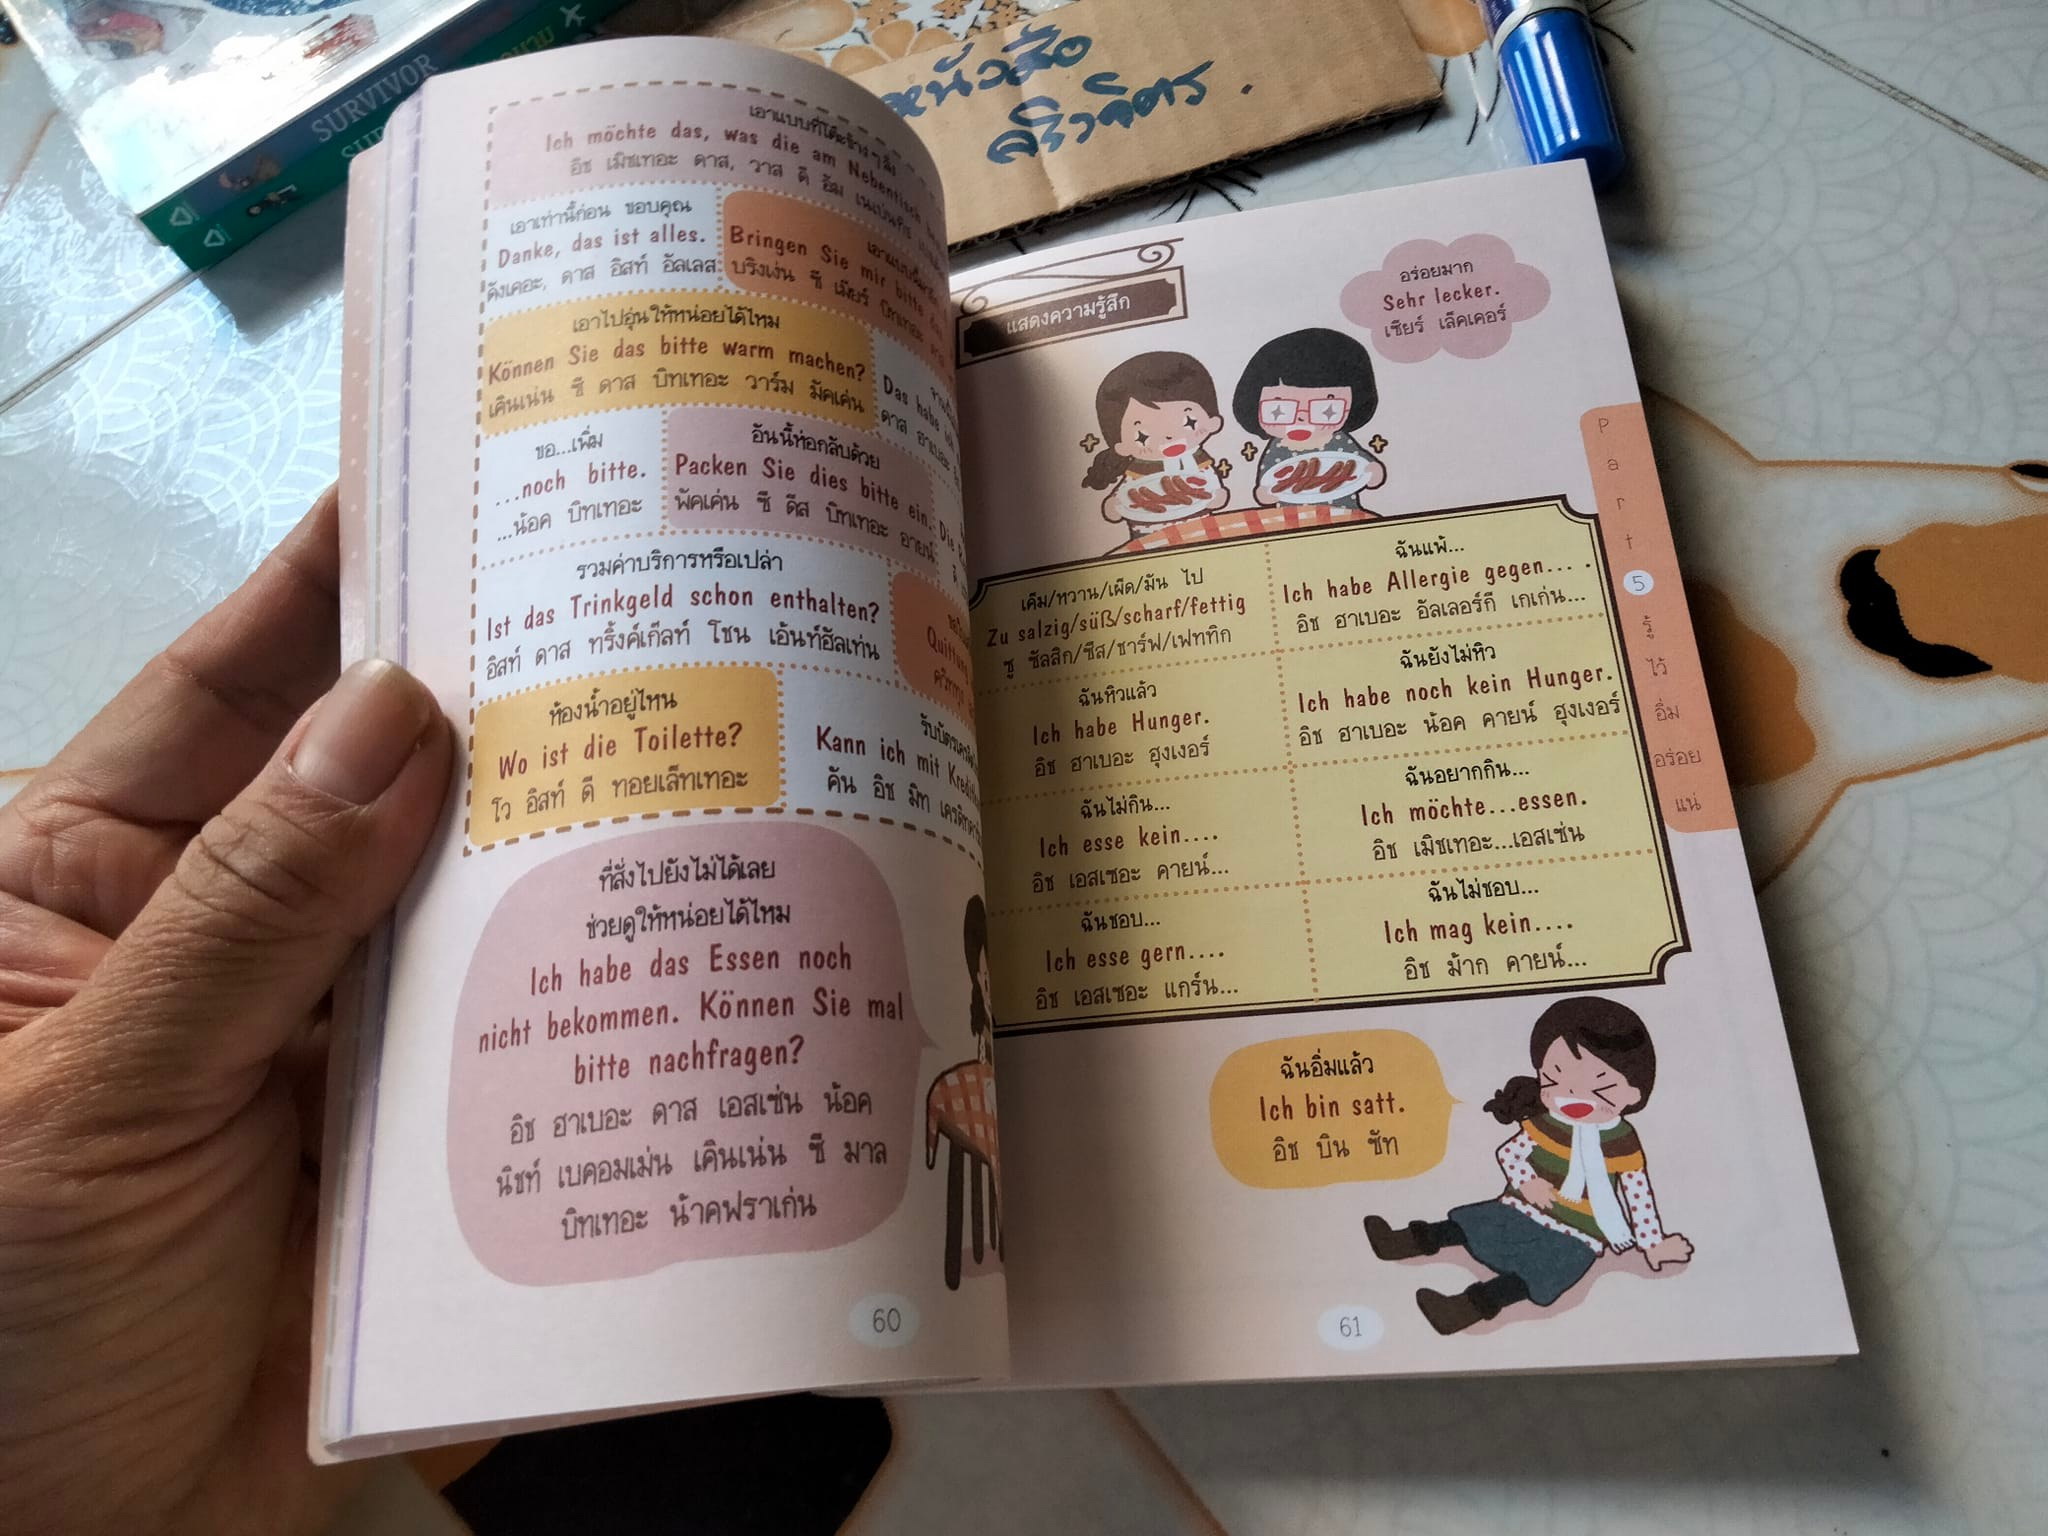 SURVIVOR
หนังสือ
เอาแบบที่โต๊ะข้างๆ สั่ง
Ich möchte das, was die am Nebentisch
อิช เมิชเทอะ ดาส, วาส ดี อัม เนเบ่นทิช
เอาเท่านี้ก่อน ขอบคุณ
Danke, das ist alles.
ดังเคอะ, ดาส อิสท์ อัลเลส
Bringen Sie mir bitte
บริงเง่น ซี เมียร์ บิทเทอะ
เอาไปอุ่นให้หน่อยได้ไหม
Können Sie das bitte warm machen?
เคินเน่น ซี ดาส บิทเทอะ วาร์ม มัคเค่น
Das habe ich
ดาส ฮาเบอะ
ขอ...เพิ่ม
...noch bitte.
...น้อค บิทเทอะ
อันนี้ห่อกลับด้วย
Packen Sie dies bitte ein.
พัคเค่น ซี ดีส บิทเทอะ อายน์
Die
รวมค่าบริการหรือเปล่า
Ist das Trinkgeld schon enthalten?
อิสท์ ดาส ทริ้งค์เก๊ลท์ โชน เอ้นท์ฮัลเท่น
Quittung
ห้องน้ำอยู่ไหน
Wo ist die Toilette?
โว อิสท์ ดี ทอยเล็ทเทอะ
Kann ich mit
คัน อิช มิท
ที่สั่งไปยังไม่ได้เลย
ช่วยดูให้หน่อยได้ไหม
Ich habe das Essen noch
nicht bekommen. Können Sie mal
bitte nachfragen?
อิช ฮาเบอะ ดาส เอสเซ่น น้อค
นิชท์ เบคอมเม่น เคินเน่น ซี มาล
บิทเทอะ น้าคฟราเก่น
60
แสดงความรู้สึก
อร่อยมาก
Sehr lecker.
เซียร์ เล็คเคอร์
เค็ม/หวาน/เผ็ด/มัน ไป
Zu salzig/süß/scharf/fettig
ซู ซัลสิก/ซืส/ชาร์ฟ/เฟททิก
ฉันแพ้...
Ich habe Allergie gegen....
อิช ฮาเบอะ อัลเลอร์กี เกเก่น...
ฉันหิวแล้ว
Ich habe Hunger.
อิช ฮาเบอะ ฮุงเงอร์
ฉันยังไม่หิว
Ich habe noch kein Hunger.
อิช ฮาเบอะ น้อค คายน์ ฮุงเงอร์
ฉันไม่กิน...
Ich esse kein....
อิช เอสเซอะ คายน์...
ฉันอยากกิน...
Ich möchte...essen.
อิช เมิชเทอะ...เอสเซ่น
ฉันชอบ...
Ich esse gern....
อิช เอสเซอะ แกร์น...
ฉันไม่ชอบ...
Ich mag kein....
อิช ม้าก คายน์...
ฉันอิ่มแล้ว
Ich bin satt.
อิช บิน ซัท
61
Part
5
รู้
ไว้
อิ่ม
อร่อย
แน่